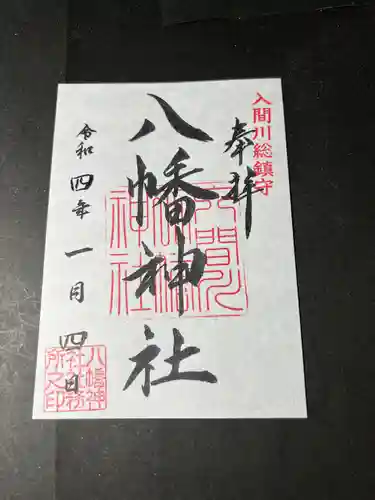 入間川総鎮守
奉拝
八幡神社
令和四年一月四日
八幡神
社社務
所之印